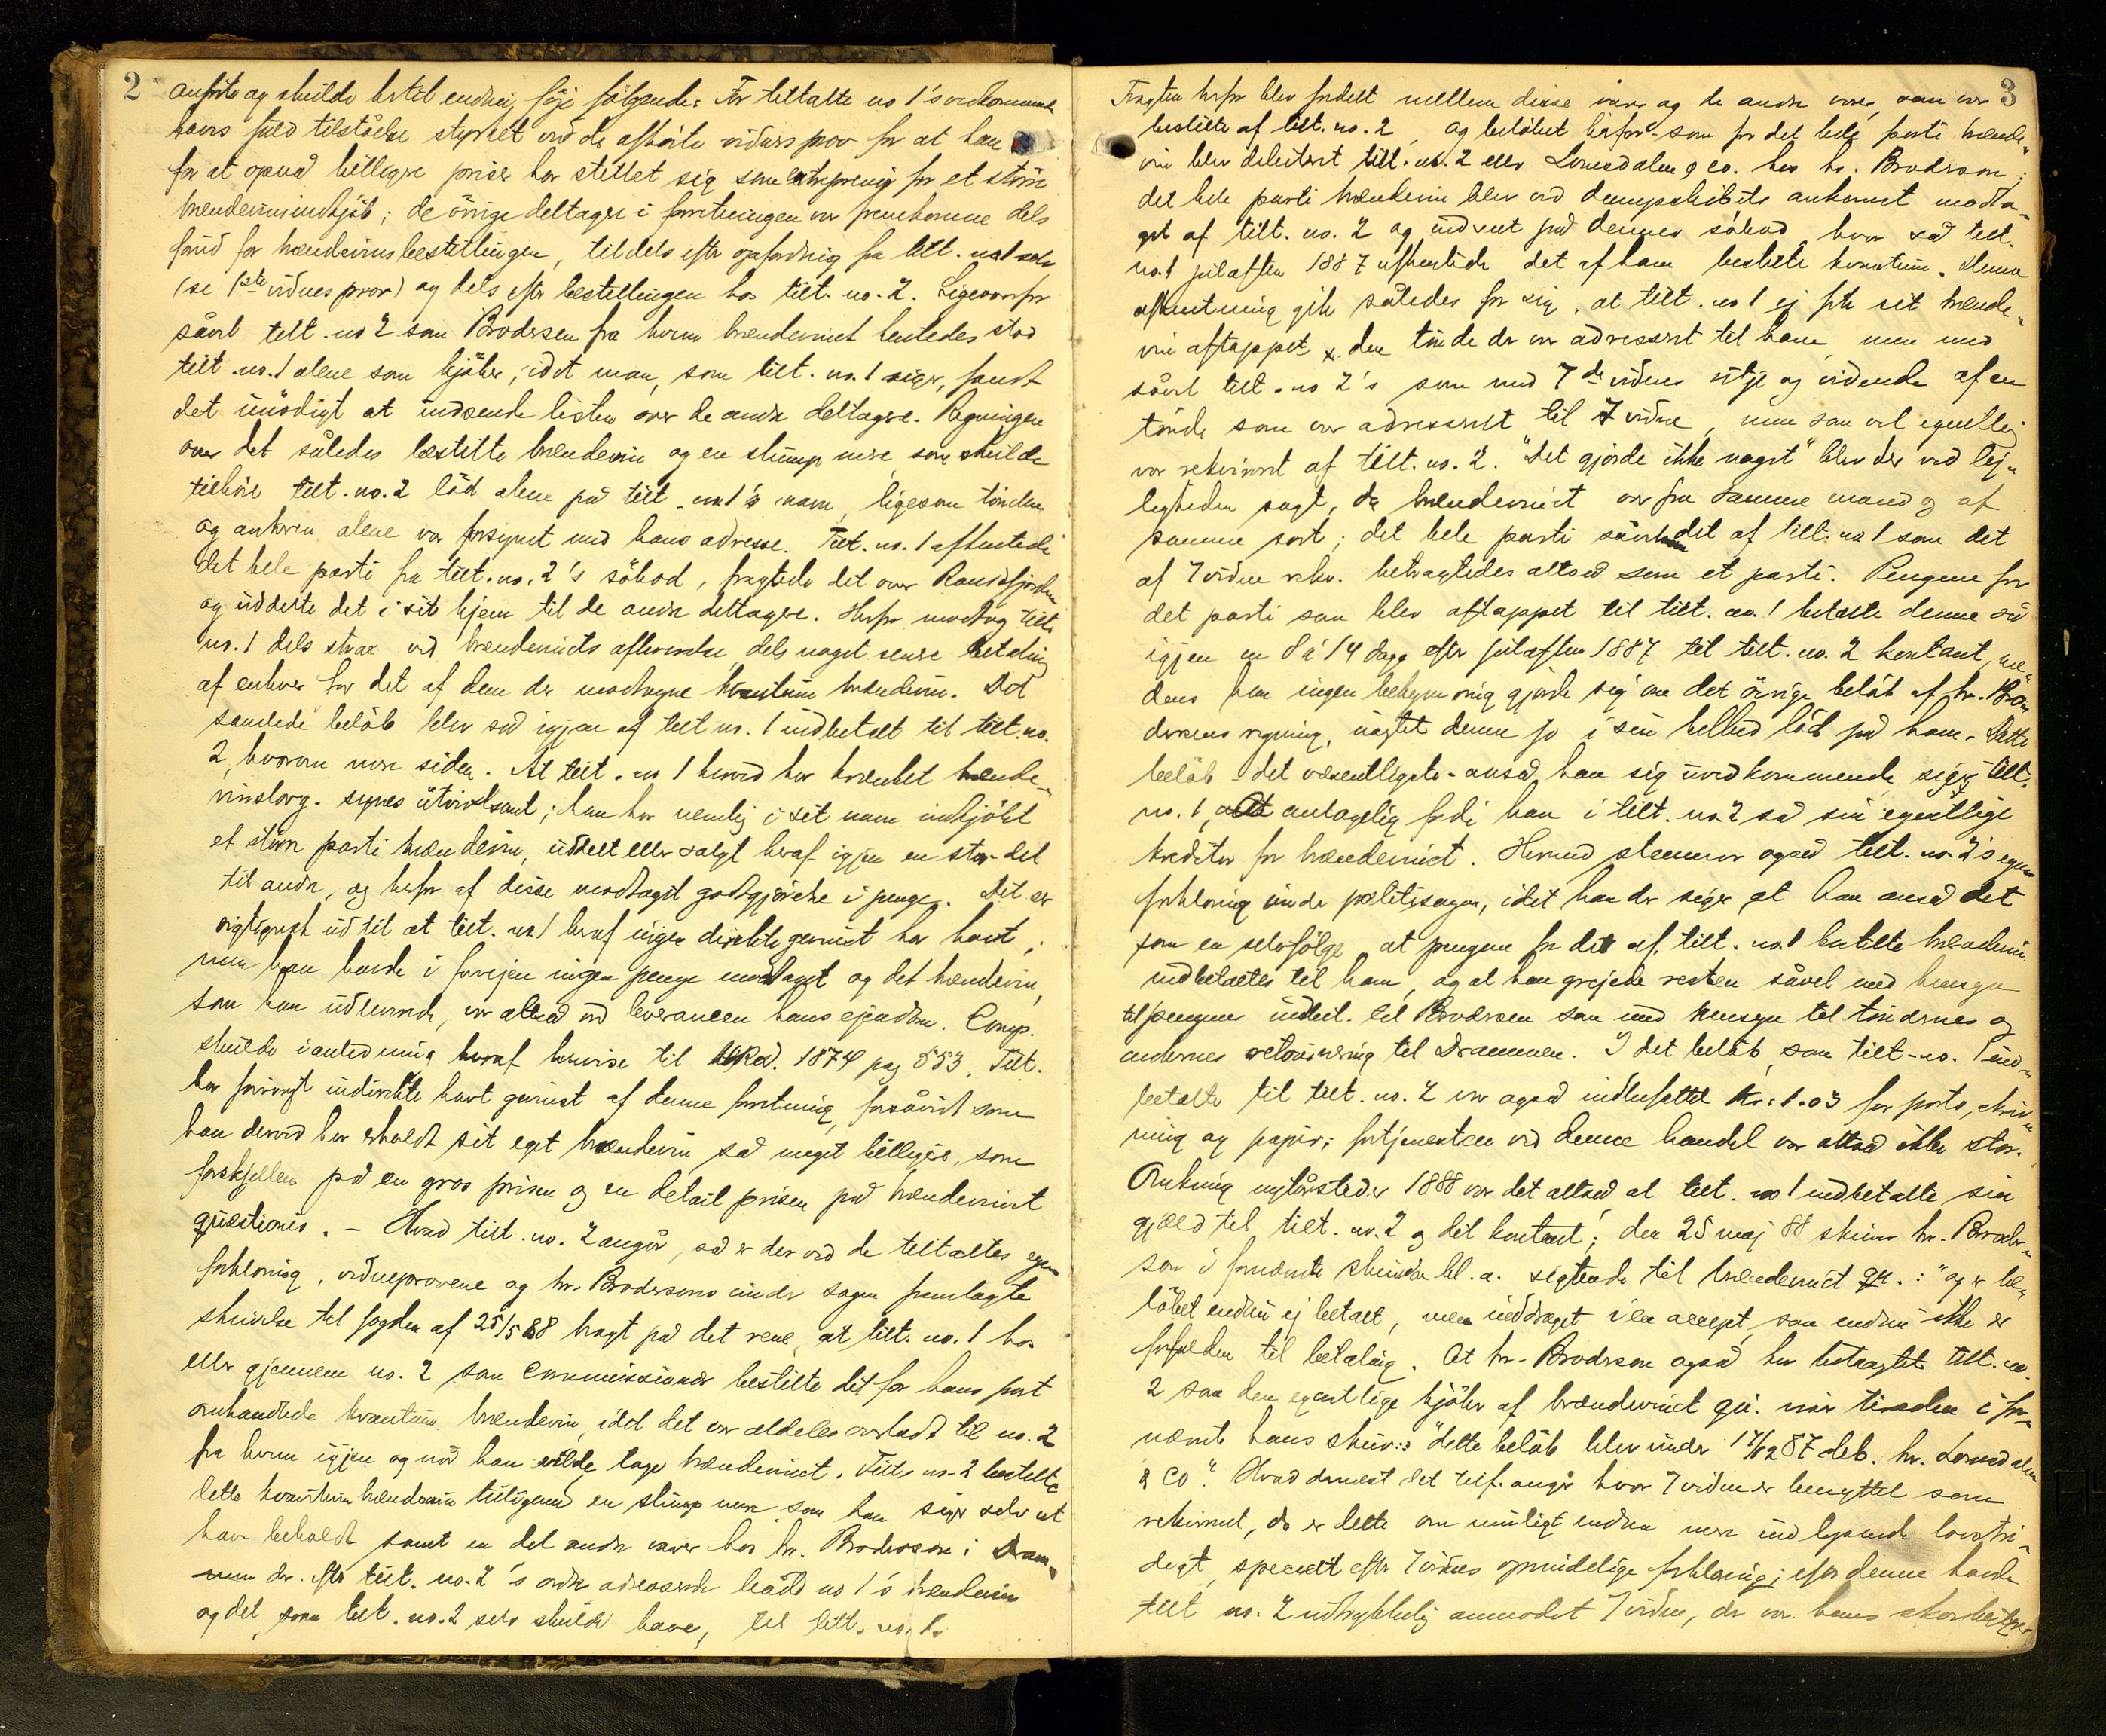 2
anförte og skulde hertil endnu föje fölgende: For tiltalte no 1's vedkommende
haves fuld tilståelse styrket ved de afhörte vidners prov for at han
for at opnå billigere priser har stillet sig som entreprenör for et större
brændevinsindkjöb; de övrige deltagere i forretningen var fremkomne dels
forud for brændevinsbestillingen, tildels efter opfordring fra tilt. no 1 selv
(se 1ste vidnes prov) og dels efter bestillingen hos tilt. no. 2. Ligeoverfor
såvel tilt. no 2 som Brodersen fra hvem brændevinet bestiltes stod
tilt. no. 1 alene som kjöber, idet man, som tilt. no. 1 siger, fandt
det unödigt at indsende listen over de andre deltagere. Regningen
over det således bestilte brændevin og en slump mere, som skulde
tilhöre tilt. no. 2 löd alene på tilt. no 1's navn, ligesom tönden
og ankeren alene var forsynet med hans adresse. Tilt. no. 1 afhentede
det hele parti fra tilt. no. 2's söbod, fragtede det over Randsfjorden
og uddelte det i sit hjem til de andre deltagere. Herfor modtog tilt.
no. 1 dels strax ved brændevinets afleverelse, dels noget senere betaling
af enhver for det af dem der modtagne kvantum brændevin. Det
samlede belöb blev så igjen af tilt no. 1 indbetalt til tilt. no.
2, hvorom mere siden. At tilt. no 1 herved har krænket brænde-
vinslovg. synes utvivlsomt; han har nemlig i sit navn indkjöbt
et större parti brændevin, uddelt eller solgt heraf igjen en stor del
til andre, og herfor af disse modtaget godtgjörelse i penge. Det er
rigtignok ud til at tilt. no 1 heraf ingen direkte gevinst har havt,
men han havde i forvejen ingen penge modtaget og det brændevin,
som han udleverede, var altså ved leverancen hans ejendom. Comp.
skulde i anledning heraf henvise til Rd. 1874 pag 553. Tilt.
har forövrigt indirekte havt gevinst af denne forretning, forsåvidt som
han derved har erholdt sit eget brændevin så meget billigere, som
forskjellen på en gros prisen og en detail prisen på brændevinet
questionis. – Hvad tilt. no. 2 angår, så er der ved de tiltaltes egen
forklaring, vidneprovene og hr. Brodersens under sagen fremlagte
skrivelse til fogden af 25/5 88 bragt på det rene, at tilt. no. 1 hos
eller gjennem no. 2 som commissionær bestilte det for hans part
omhandlede kvantum brændevin, idet det var aldeles overladt til no. 2
fra hvem igjen og når han vilde tage brændevinet. Tilt. no. 2 bestilte
dette kvantum brændevin tilligemed en slump mere som han siger selv at
have beholdt samt en del andre varer hos hr. Brodersen i Dram-
men der efter tilt. no. 2's ordre adresserede både no 1's brændevin
og det, som tilt. no. 2 selv skulde have, til tilt. no. 1.
3
Fragten herfor blev fordelt mellem disse varer og de andre varer, som var
bestilte af tilt. no. 2, og belöbet herfor - som for det hele parti brænde-
vin blev debiteret tilt. no. 2 eller Lomsdalen & co. hos hr. Brodersen;
det hele parti brændevin blev ved dampskibets ankomst modta-
get af tilt. no. 2 og indsat på dennes söbod, hvor så tilt.
no. 1 juleaften 1887 afhentede det af ham bestilte kvantum. Denne
afhentning gik således for sig, at tilt. no 1 ej fik sit brænde-
vin aftappet x. den tönde der var adresseret til ham, men med
såvel tilt. no 2's som med 7de vidnes vilje og vidende af en
tönde som var adresseret til 7 vidne, men som vel egentlig
var rekvireret af tilt. no. 2. "Det gjorde ikke noget" blev der ved lej-
ligheden sagt, da brændevinet var fra samme mand og af
samme sort; det hele parti såvel det af tilt. no 1 som det
af 7 vidne rekv. betragtedes altså som et parti. Pengene for
det parti som blev aftappet til tilt. no. 1 betalte denne så
igjen en 8 à 14 dage efter juleaften 1887 til tilt. no. 2 kontant, me-
dens han ingen bekymring gjorde sig om det övrige belöb af hr. Bro-
dersens regning, uagtet denne jo i sin helhed löd på ham. Dette
belöb - det væsentligste - anså han sig uvedkommende, siger tilt.
no. 1, antagelig fordi han i tilt. no. 2 så sin egentlige
kreditor for brændevinet. Hermed stemmer også tilt. no. 2's egen
forklaring under politisagen, idet han der siger, at han anså det
som en selvfölge, at pengene for det af tilt. no. 1 bestilte brændevin
indbetaltes til ham, og at han grejede resten såvel med hensyn
til pengenes indbet. til Brodersen som med hensyn til töndernes og
ankernes retournering til Drammen. I det belöb, som tilt. no. 1 ind-
betalte til tilt. no. 2 var også indbefattet kr. 1.03 for porto, skriv-
ning og papir; fortjenesten ved denne handel var altså ikke stor.
Omkring nytårstider 1888 var det altså, at tilt. no 1 indbetalte sin
gjæld til tilt. no. 2 og det kontant; den 25 maj 88 skriver hr. Broder-
sen i fornævnte skrivelse bl. a. sigtende til brændevinet qu.: "og er be-
löbet endnu ej betalt, men inddraget i en accept, som endnu ikke er
forfalden til betaling. At hr. Brodersen også har betragtet tilt. no.
2 som den egentlige kjöber af brændevinet qu. viser tillige i for-
nævnte hans skriv.: "dette belöb blev under 17/12 87 deb. hr. Lomsdalen
& co." Hvad dernæst det tilf. angår hvor 7 vidne er benyttet som
rekvirent, da er dette om muligt endnu mere indlysende lovstri-
digt, specielt efter 7 vidnes oprindelige forklaring; efter denne havde
tilt no. 2 udtrykkelig anmodet 7 vidne, der var hans